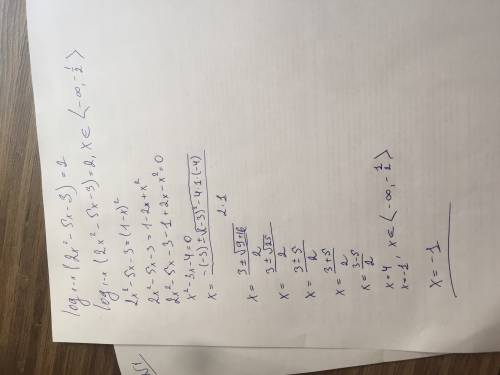 log₁₋ₓ(2x² - 5x - 3) = 2
log₁₋ₓ(2x² - 5x - 3) = 2, x ∈ ⟨-∞, -1/2⟩
2x² - 5x - 3 = (1 - x)²
2x² - 5x - 3 = 1 - 2x + x²
2x² - 5x - 3 - 1 + 2x - x² = 0
x² - 3x - 4 = 0
x = (-(-3) ± √((-3)² - 4·1·(-4))) / (2·1)
x = (3 ± √(9+16)) / 2
x = (3 ± √25) / 2
x = (3 ± 5) / 2
x = (3 + 5) / 2
x = (3 - 5) / 2
x = 4
x = -1, x ∈ ⟨-∞, -1/2⟩
x = -1